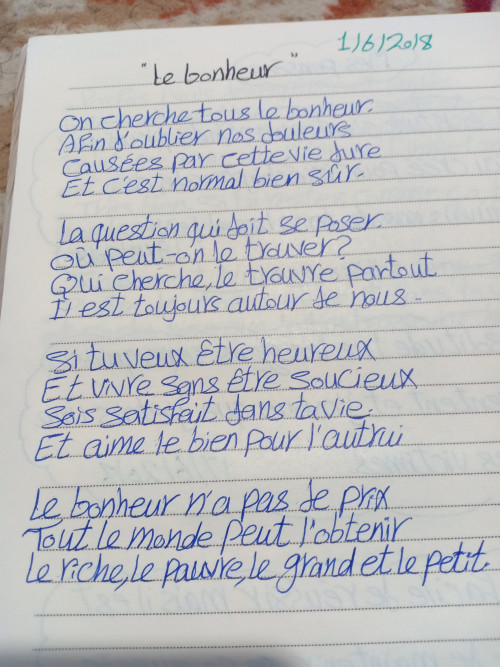 1/6/2018
"Le bonheur"
On cherche tous le bonheur.
Afin d'oublier nos douleurs
Causées par cette vie dure
Et c'est normal bien sûr.
La question qui doit se poser.
Où peut-on le trouver?
Qui cherche, le trouvre partout
Il est toujours autour de nous.
Si tu veux être heureux
Et vivre sans être soucieux
Sois satisfait dans ta vie.
Et aime le bien pour l'autrui
Le bonheur n'a pas de prix
Tout le monde peut l'obtenir
Le riche, le pauvre, le grand et le petit.